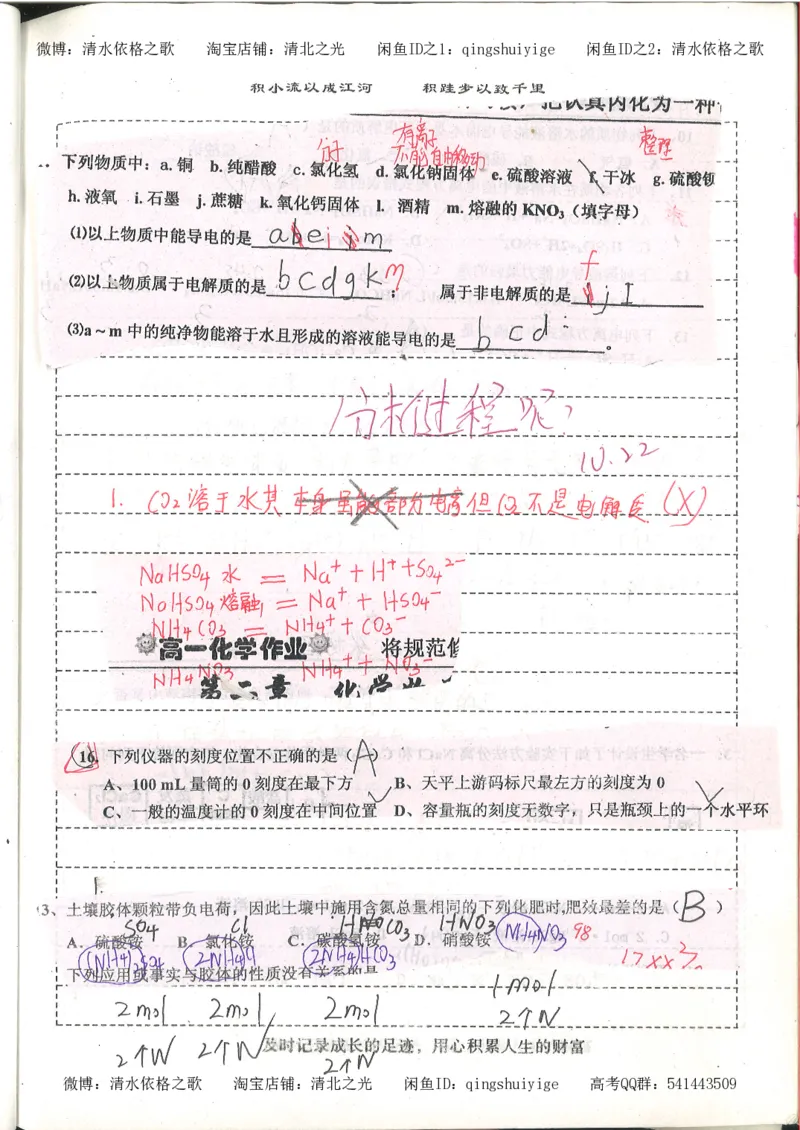 微博：清水依格之歌 淘宝店铺：清北之光 闲鱼ID之1：qingshuiyige 闲鱼ID之2：清水依格之歌
积小流以成江河 积跬步以致千里
把认真内化为一种
有离子
不能自由移动
整理
下列物质中：a. 铜 b. 纯醋酸 c. 氯化氢 d. 氯化钠固体 e. 硫酸溶液 f. 干冰 g. 硫酸钡
h. 液氧 i. 石墨 j. 蔗糖 k. 氧化钙固体 l. 酒精 m. 熔融的 KNO₃（填字母）
⑴以上物质中能导电的是 a b e i j m
⑵以上物质属于电解质的是 b c d g k m； 属于非电解质的是 f j l
⑶a～m 中的纯净物能溶于水且形成的溶液能导电的是 b c d 。
分析过程呢？
10.22
1. CO₂溶于水其 但CO₂不是电解质 (X)
NaHSO₄ 水 = Na⁺ + H⁺ + SO₄²⁻
NaHSO₄ 熔融 = Na⁺ + HSO₄⁻
NH₄CO₃ = NH₄⁺ + CO₃⁻
高一化学作业 将规范修
NH₄NO₃ NH₄⁺ + NO₃⁻
第二章 化学
16 下列仪器的刻度位置不正确的是（A）
A、100 mL 量筒的 0 刻度在最下方 B、天平上游码标尺最左方的刻度为 0
C、一般的温度计的 0 刻度在中间位置 D、容量瓶的刻度无数字，只是瓶颈上的一个水平环
1.
3、土壤胶体颗粒带负电荷，因此土壤中施用含氮总量相同的下列化肥时,肥效最差的是（B）
SO₄ Cl HCO₃ HNO₃ NH₄NO₃ 98
A．硫酸铵 B．氯化铵 C．碳酸氢铵 D．硝酸铵
(NH₄)₂SO₄ 2NH₄Cl 2NH₄HCO₃ 17××2
下列应用或事实与胶体的性质没有关系的是
1mol
2mol 2mol 2mol 2个N
2个N 2个N 2个N
及时记录成长的足迹，用心积累人生的财富
微博：清水依格之歌 淘宝店铺：清北之光 闲鱼ID：qingshuiyige 高考QQ群：541443509